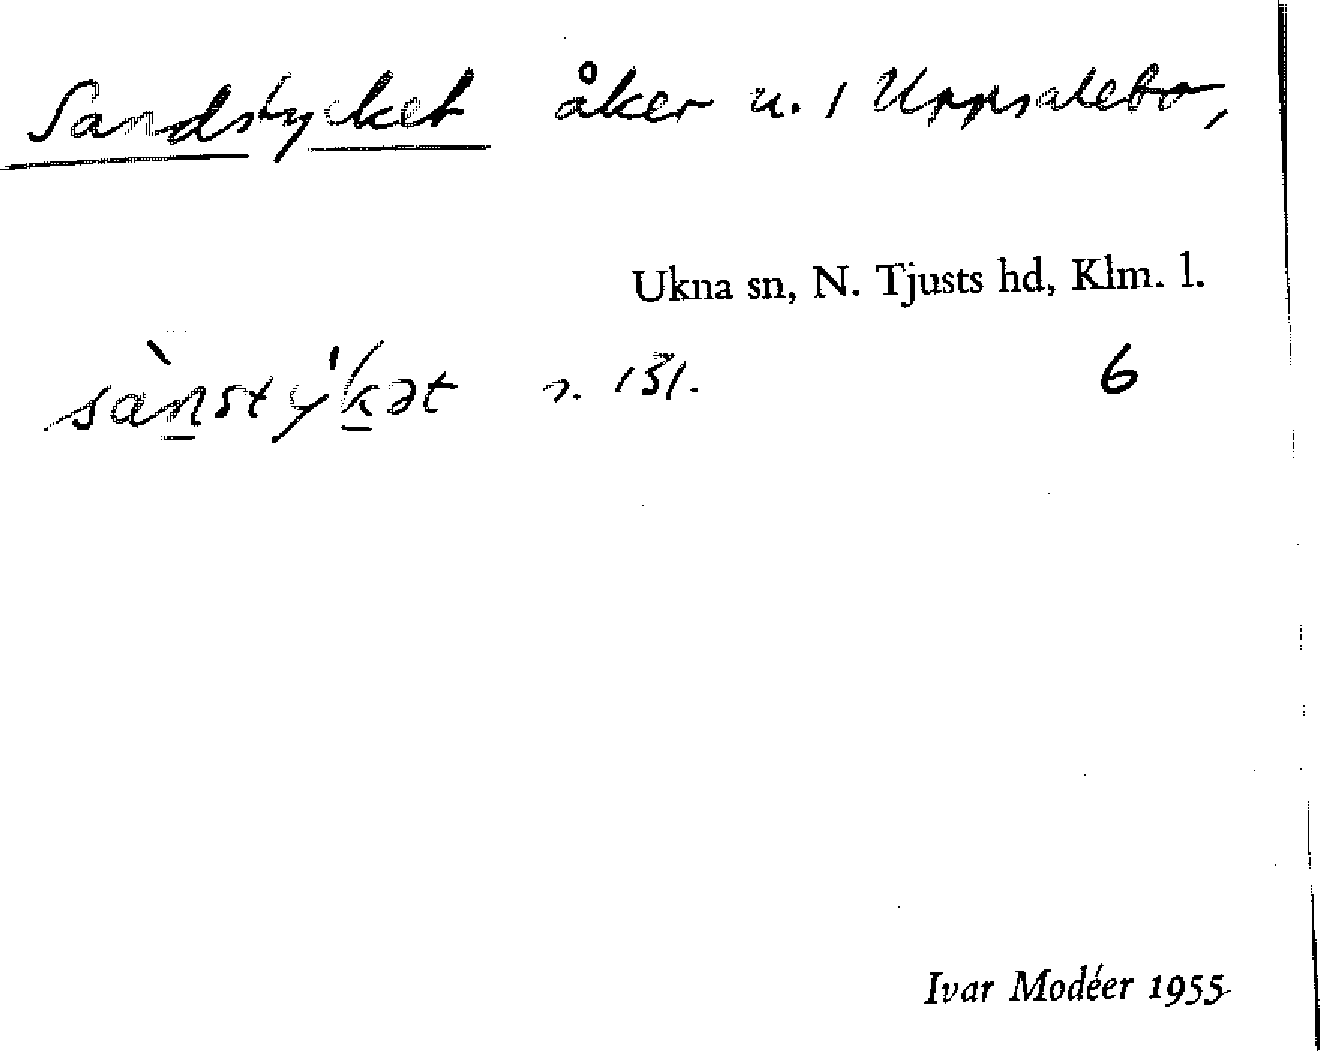 Sandstycket åker u. 1 Uppsalebo,
Ukna sn, N. Tjusts hd, Klm. l.
sàn̲stýk̲ət s. 131. 6
Ivar Modéer 1955